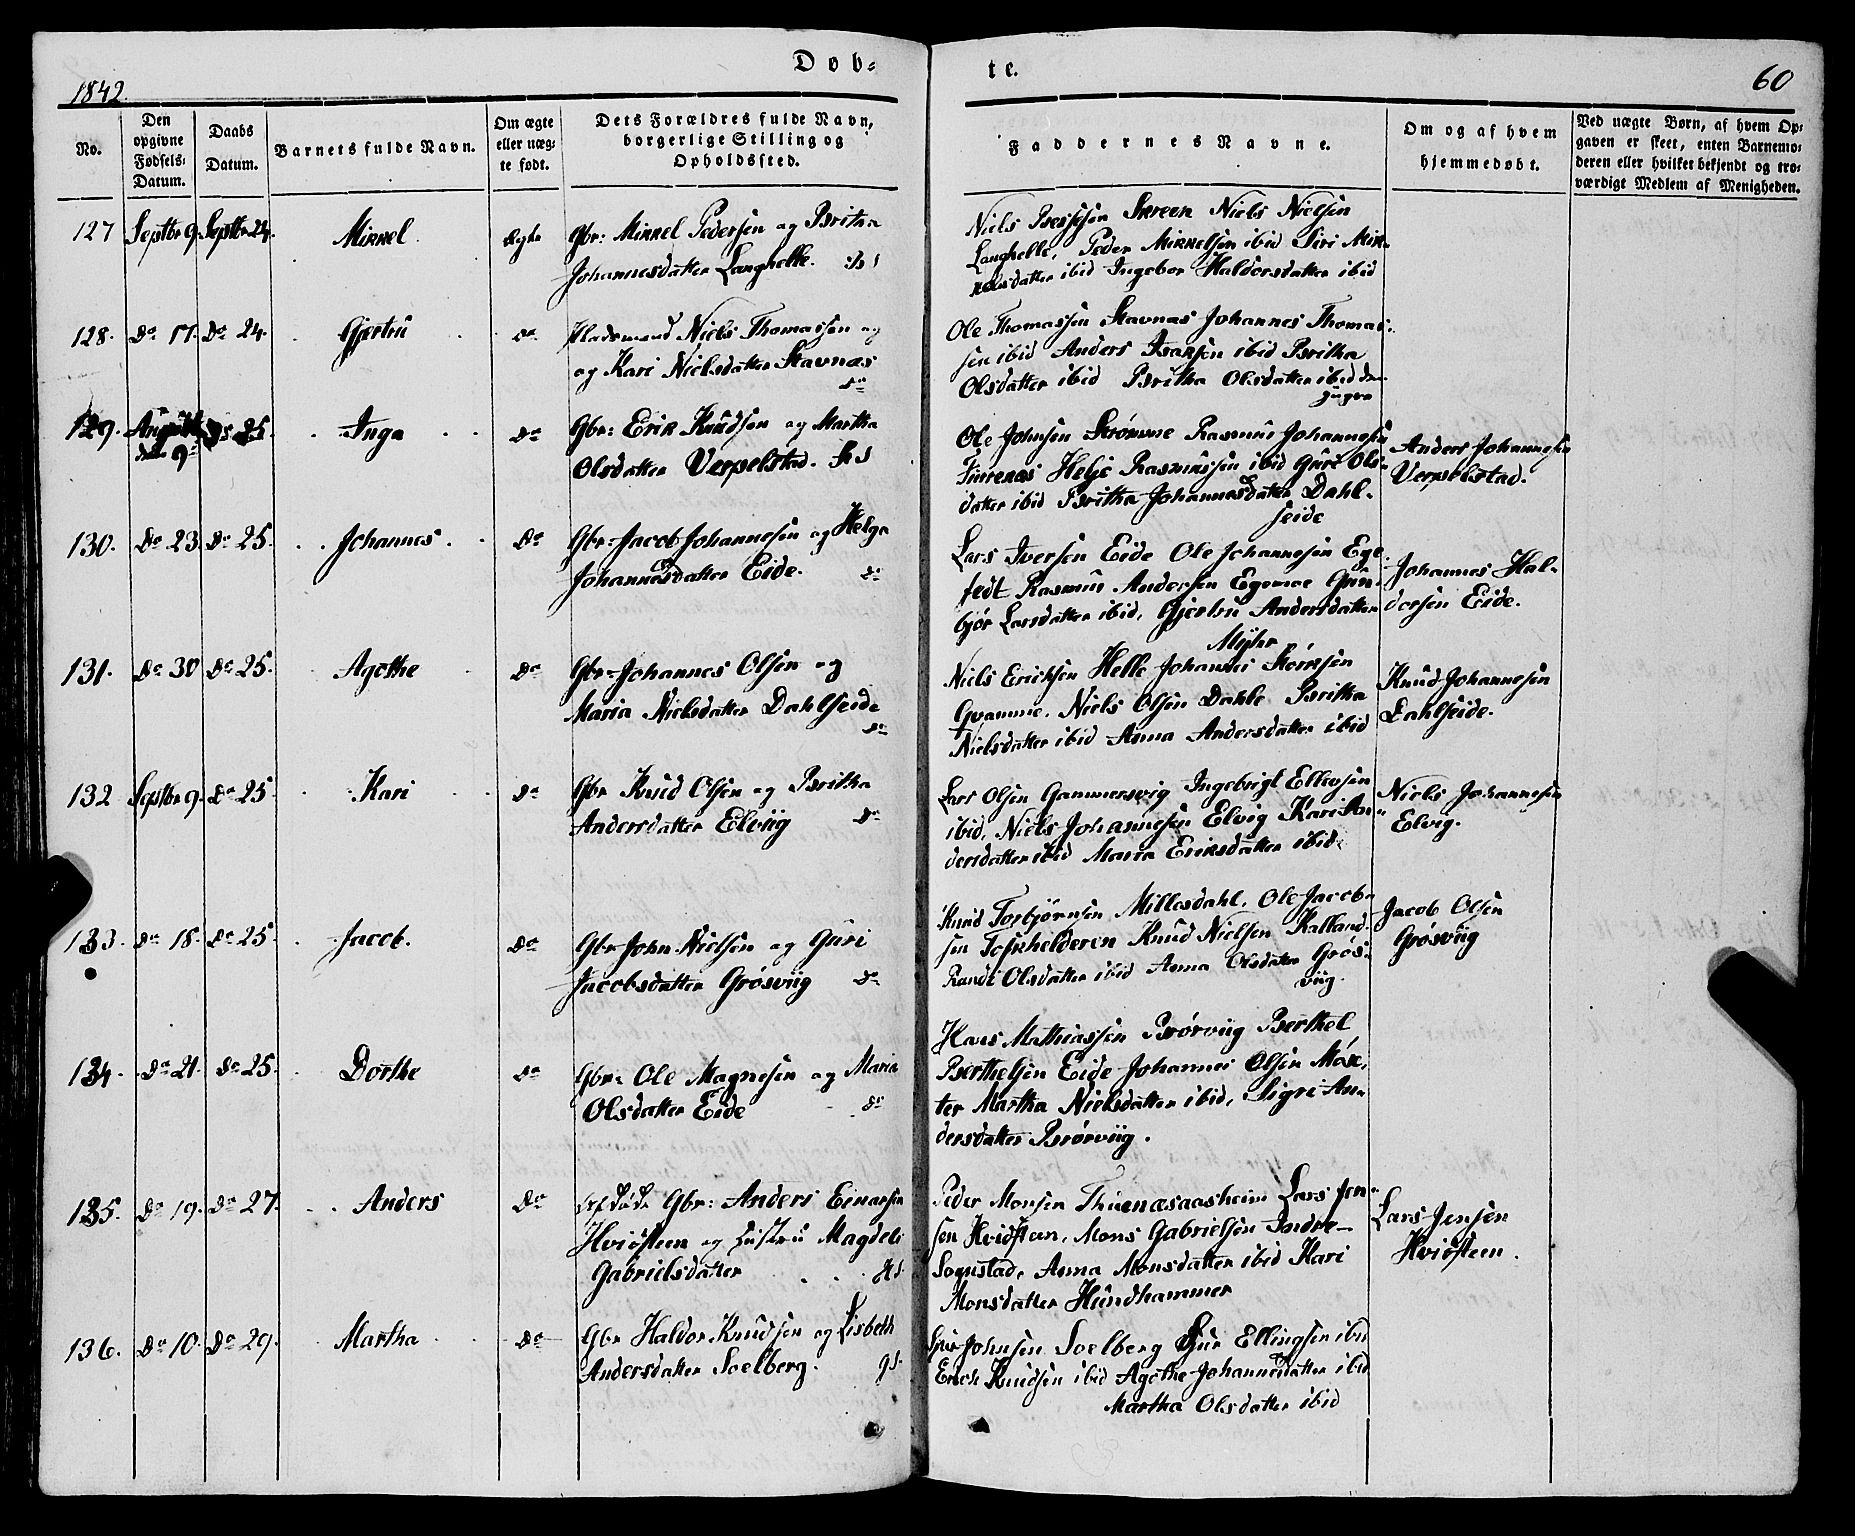 1842.
Døb-
te.
60
No.
Den opgivne Fødsels-Datum.
Daabs Datum.
Barnets fulde Navn.
Om ægte eller uægte født.
Dets Forældres fulde Navn, borgerlige Stilling og Opholdssted.
Faddernes Navne.
Om og af hvem hjemmedøbt.
Ved uægte Børn, af hvem Opgaven er skeet, enten Barnemoderen eller hvilket bekjendt og troværdigt Medlem af Menigheden.
127 Septbr 9. Septbr 24. Mikkel. Ægte Gbr: Mikkel Pedersen og Britha
Johannesdatter Langhelle.
Niels Nielsen
Langhelle, Peder Mikkelsen ibid Siri Mik-
kelsdatter ibid Ingebor Haldorsdatter ibid
128. Do 17. Do 24. Gjertru Do Niels Thomassen og
og Kari Nielsdatter Stavnæs
Do
Ole Thomassen Stavnæs Johannes Thomas-
sen ibid Anders Isaksen ibid Britha
Olsdatter ibid Britha Olsdatter ibid den
yngre
129. August den 9de 25. Inga Do Gbr: Erik Knudsen og Martha
Olsdatter Verpelstad.
Ole Johnsen Strømme Rasmus Johannesen
Furenæs Helje Rasmussen ibid Guri Ols-
datter ibid Britha Johannesdatter Dahl-
seide
Anders Johannesen
Verpelstad.
130. Do 23. Do 25. Johannes. Do Gbr. Jacob Johannesen og Helga
Johannesdatter Eide. Do
Lars Iversen Eide Ole Johannesen Ege-
fedt Rasmus Andersen Egemoe Gun-
bjør Larsdatter ibid, Gjertru Andersdatter
Myhr
Johannes Hal-
dorsen Eide.
131. Do 30 Do 25. Agothe Do Gbr. Johannes Olsen og
Maria Nielsdatter Dahlseide
Do
Niels Ericksen Helle Johannes
Qvamme. Niels Olsen Dahle Britha
Nielsdatter ibid Anna Andersdatter ibid
Knud Johannesen
Dahlseide.
132 Septbr 9. Do 25 Kari Do Gbr Knud Olsen og Britha
Andersdatter Elviig Do
Lars Olsen Gammersvig Ingebrigt Ellevsen
ibid, Niels Johannesen Elvig Kari An-
dersdatter ibid Maria Eriksdatter ibid
Niels Johannesen
Elvig.
133. Do 18. Do 25. Jacob. Do Gbr John Nielsen og Guri
Jacobsdatter Grøsviig Do
Knud Torbjørnsen Millesdahl, Ole Jacob-
sen Knud Nielsen Kalland
Randi Olsdatter ibid Anna Olsdatter Grøs-
viig.
Jacob Olsen
Grøsviig
134. Do 21. Do 25. Dorthe Do Gbr: Ole Magnesen og Maria
Olsdatter Eide Do
Hans Mathiassen Brørviig Berthel
Berthelsen Eide Johannes Olsen Møx-
ter Martha Nielsdatter ibid, Sigri An-
dersdatter Brørviig.
135. Do 19. Do 27. Anders Do Gbr: Anders Einarsen
Hvidsteen og Hustru Magdeli
Gabrielsdatter
Peder Monsen Lars Jen-
sen Hvidsteen, Mons Gabrielsen Indre-
Sognstad, Anna Monsdatter ibid Kari
Monsdatter Hundhammer
Lars Jensen
Hvidsteen.
136. Do 10. Do 29. Martha Do Gbr Haldor Knudsen og Lisbeth
Andersdatter Soelberg.
Johnsen Soelberg Sjur Ellingsen ibd
Erich Knudsen ibid Agothe Johannesdatter ibid
Martha Olsdatter ibid